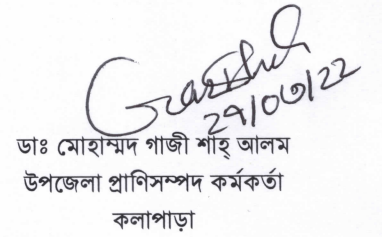 ২৭/০৩/২২
ডাঃ মোহাম্মদ গাজী শাহ্ আলম
উপজেলা প্রাণিসম্পদ কর্মকর্তা
কলাপাড়া